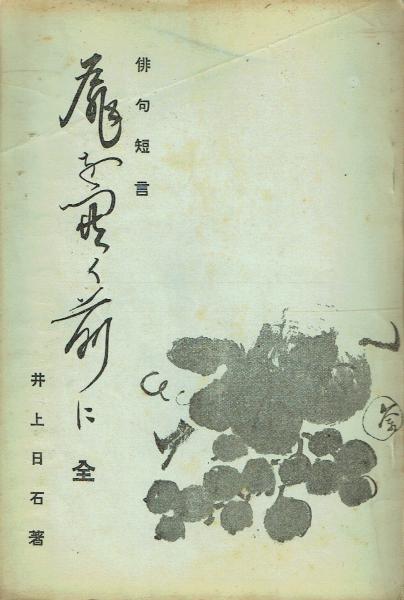 俳句短言
扉を開く前に 全
井上日石著